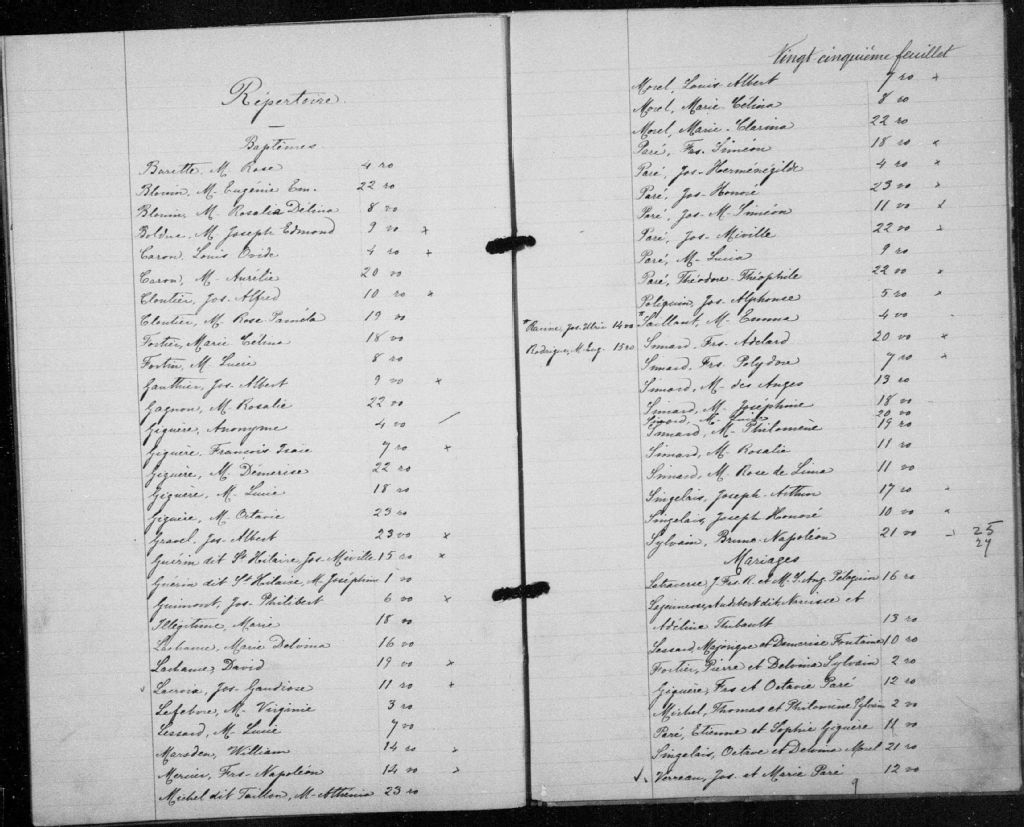 Répertoire.
Baptêmes.
Barette, M. Rose 4 ro
Blouin, M. Eugénie Em. 22 ro
Blouin, M. Rosalia Délina 8 vo
Bolduc, M. Joseph Edmond 9 vo x
Caron, Louis Ovide 4 ro x
Caron, M. Aurélie 20 vo
Cloutier, Jos. Alfred 10 ro x
Cloutier, M. Rose Paméla 19 vo
Fortier, Marie Célina 18 vo
Fortin, M. Lucie 8 ro
Gauthier, Jos. Albert 9 vo x
Gagnon, M. Rosalie 22 vo
Giguère, Anonyme 4 vo /
Giguère, François Isaïe 7 ro x
Giguère, M. Démerise 22 ro
Giguère, M. Lucie 18 ro
Giguère, M. Octavie 23 ro
Gravel, Jos. Albert 23 vo x
Guérin dit St Hilaire, Jos. Miville 15 ro x
Guérin dit St Hilaire, M. Joséphine 1 vo
Guimont, Jos. Philibert 6 vo x
Illégitime, Marie 18 vo
Lachance, Marie Delvina 16 vo
Lachance, David 19 vo x
Lacroix, Jos. Gaudiose 11 ro x
Lefebvre, M. Virginie 3 ro
Lessard, M. Lucie 7 vo
Marsden, William 14 ro x
Mercier, Frs. Napoléon 14 vo x
Michel dit Taillon, M. Athénia 23 ro
Vingt-cinquième feuillet
Morel, Louis Albert 7 ro x
Morel, Marie Célina 8 vo
Morel, Marie Clarina 22 ro
Paré, Frs. Siméon 18 ro x
Paré, Jos. Herménégilde 4 ro x
Paré, Jos. Honoré 23 vo x
Paré, Jos. M. Siméon 11 vo x
Paré, Jos. Miville 22 vo x
Paré, M. Lucia 9 ro
Paré, Théodore Théophile 22 vo x
Poliquin, Jos. Alphonse 5 ro x
* Racine, Jos. Ulric 14 vo
* Saillant, M. Emma 4 vo
Rodrigue, M. Eug. 15 ro
Simard, Frs. Adelard 20 vo x
Simard, Frs. Polydore 7 ro x
Simard, M. des Anges 13 ro
Simard, M. Joséphine 18 vo
Simard, M. Lucie 20 vo
Simard, M. Philomène 19 ro
Simard, M. Rosalie 11 ro
Simard, M. Rose de Lima 11 vo
Singelais, Joseph Arthur 17 ro x
Singelais, Joseph Honoré 10 vo x
Sylvain, Bruno Napoléon 21 vo x
25
27
Mariages
Latraverse, J. Frs. R. et M. J. Aug. Peloquin 16 ro
Lajeunesse, Audibert dit Narcisse et
Adéline Thibault 13 ro
Lessard, Majorique et Demerise Fontaine 10 ro
Fortier, Pierre et Delvina Sylvain 2 ro
Giguère, Frs et Octavie Paré 12 ro
Michel, Thomas et Philomène Sylvain 2 vo
Paré, Etienne et Sophie Giguère 11 vo
Singelais, Octave et Delvina Morel 21 ro
Verreau, Jos. et Marie Paré 12 vo
9